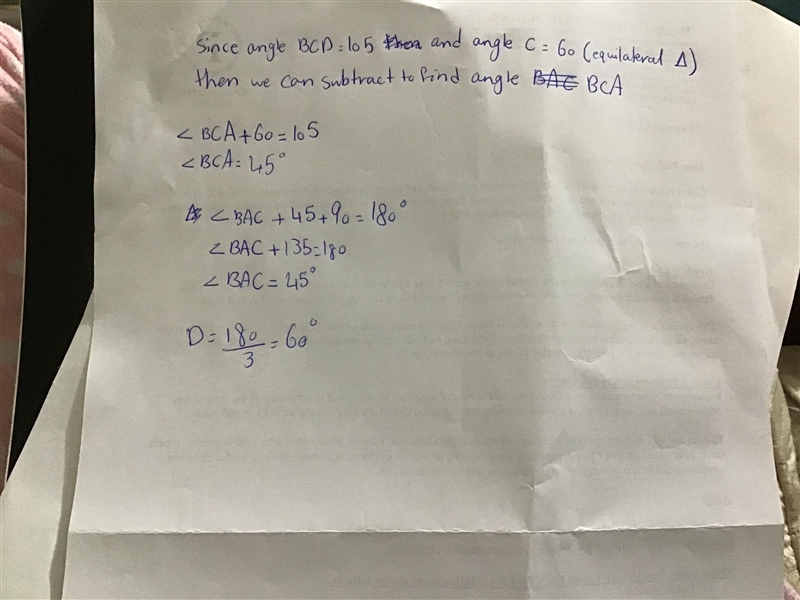 Since angle BCD = 105 and angle C = 60 (equilateral Δ)
then we can subtract to find angle BCA
∠BCA + 60 = 105
∠BCA = 45°
∠BAC + 45 + 90 = 180°
∠BAC + 135 = 180
∠BAC = 45°
D = 180/3 = 60°